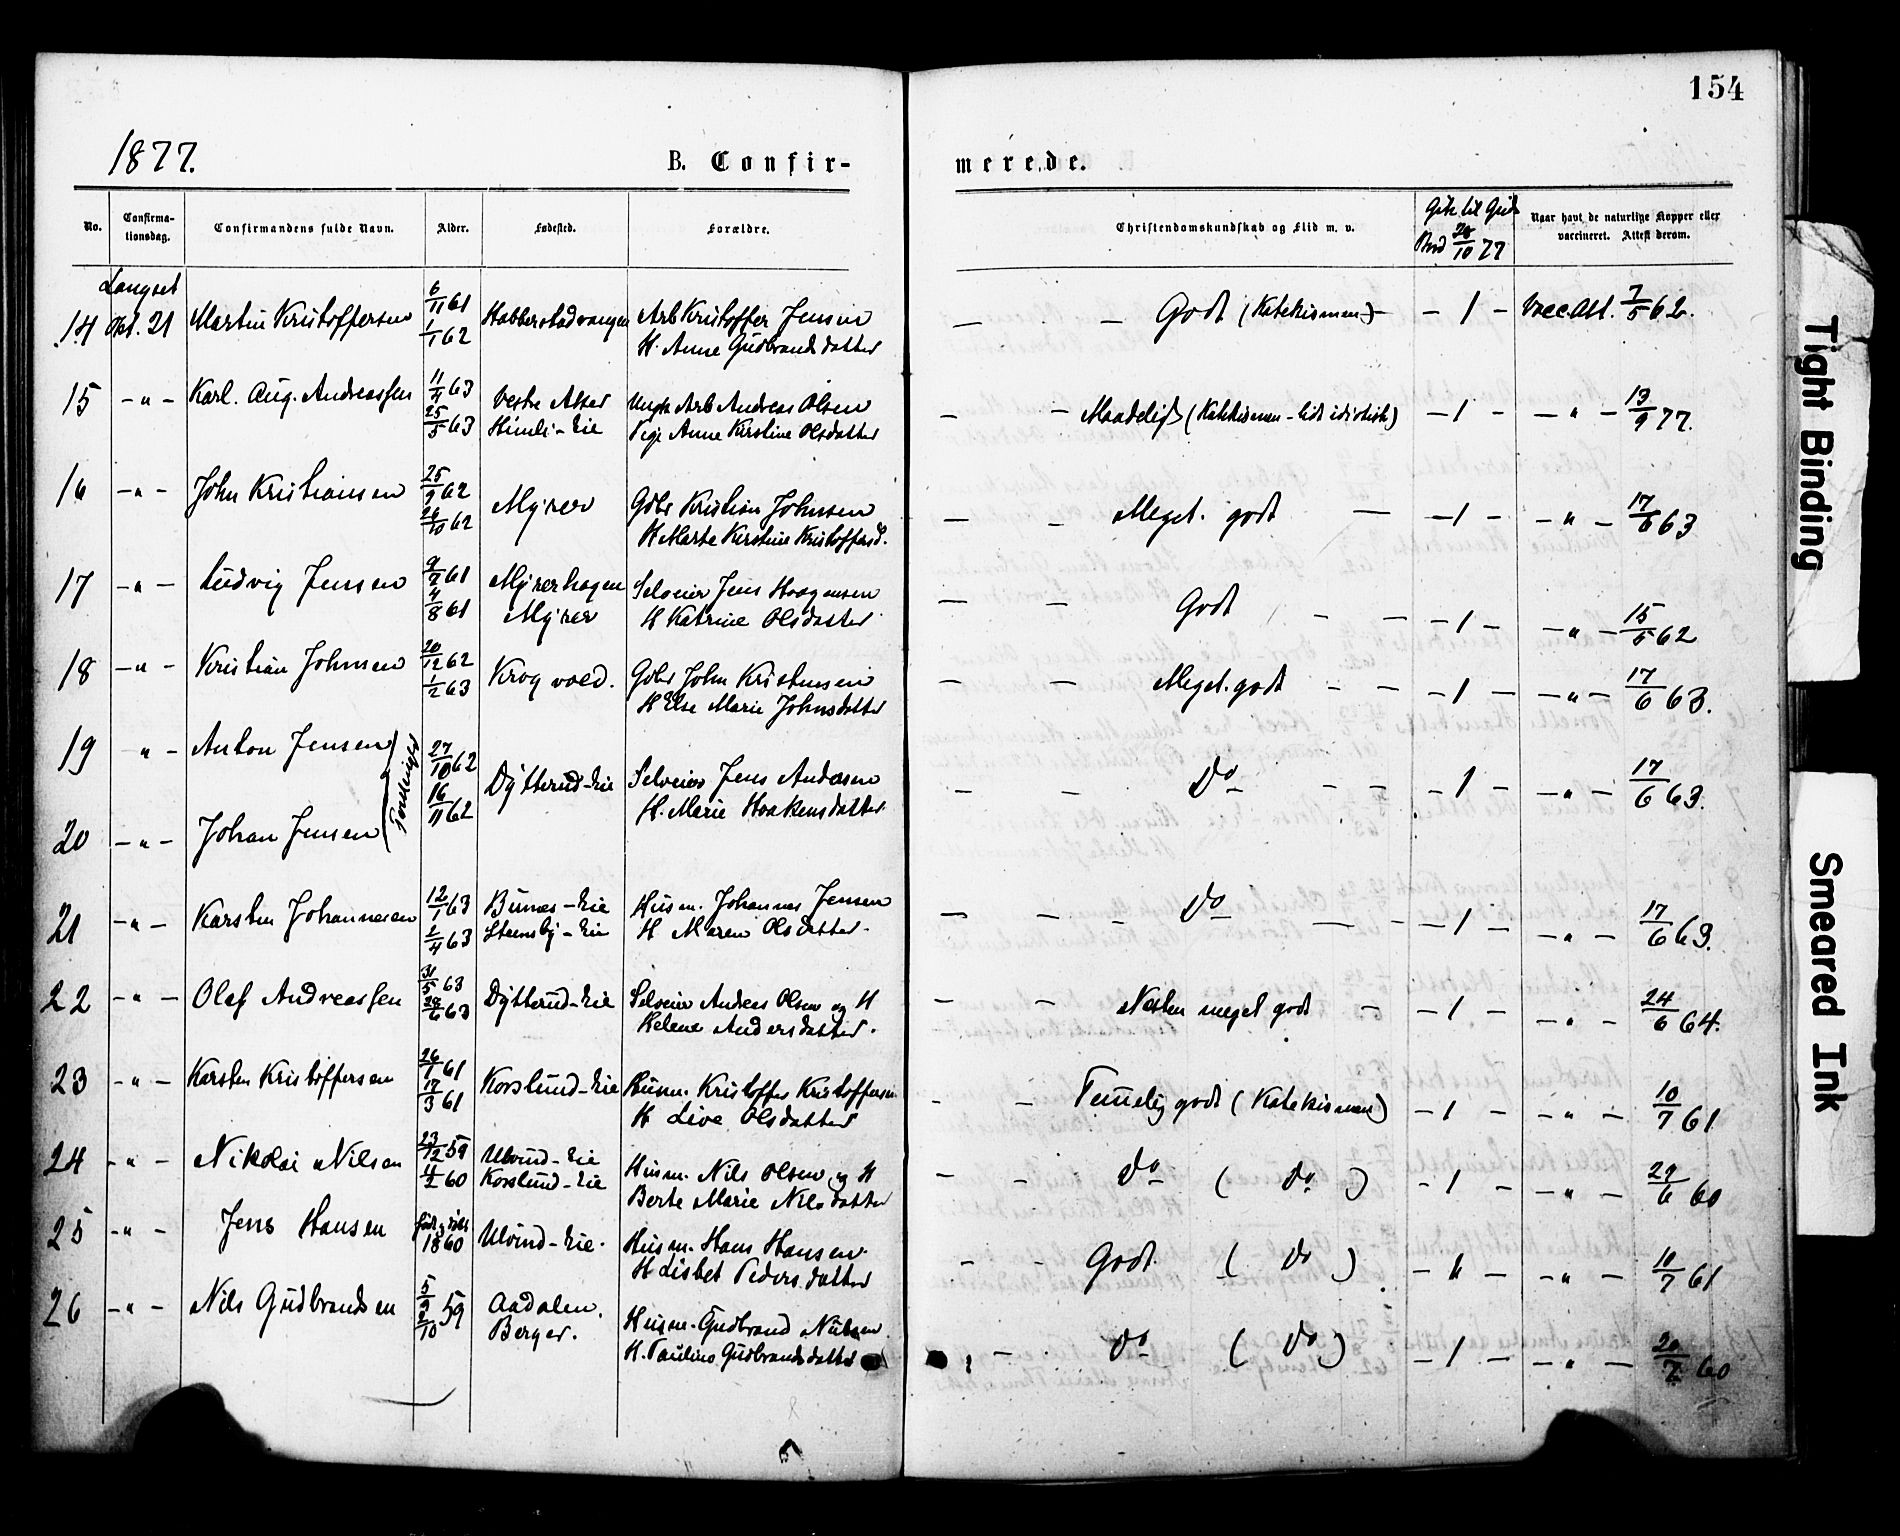 154
1877. B. Confir- merede.
No. Confirma-tionsdag. Confirmandens fulde Navn. Alder. Fødested. Forældre. Christendomskundskab og Flid m. v. Gik til Guds Bord 28/10 77 Naar havt de naturlige Kopper eller vaccineret. Attest derom.
Langset
14 Okt. 21 Martin Kristoffersen 6/11 61 Habberstadvangen Arb Kristoffer Jensen — — Godt (Katekismen) — — 1 — Vacc.Att. 7/5 62.
1/1 62 H. Anne Gudbrandsdatter
15 — " — Karl. Aug. Andreassen 11/4 63 Vestre Aker Ungk Arb Andreas Olsen — — Maadelig (Katekismen — lidt idiotisk) — 1 — — " — 13/9 77.
25/5 63 Himli-Eie Pige Anne Kirstine Olsdatter
16 — " — John Kristiansen 25/9 62 Myrer Gdbr Kristian Johnsen — — Meget. godt — — 1 — — " — 17/6 63
26/10 62 H Marte Kirstine Kristoffersd.
17 — " — Ludvig Jensen 9/7 61 Myrerhagen Selveier Jens Haagensen — — Godt — — — 1 — — " — 15/5 62
4/8 61 Myrer H Katrine Olsdatter
18 — " — Kristian Johnsen 20/12 62 Krogvold. Gdbr John Kristensen — — Meget. godt — — — 1 — — " — 17/6 63.
1/2 63 H Else Marie Johnsdatter
19 " — Anton Jensen Tvillinger 27/10 62 Dytterud-Eie Selveier Jens Andersen — — Do — — — 1 — — " — 17/6 63.
20 — " — Johan Jensen 16/11 62 H. Marie Haakensdatter
21 — " — Karsten Johannesen 12/1 63 Bunes-Eie Husm. Johannes Jensen — — - Do — - — 1 — — " — 17/6 63.
2/4 63 Steensby-Eie H Maren Olsdatter.
22 — " — Olaf Andreassen 31/5 63 Dytterud-Eie Selveier Andreas Olsen og H — — Næsten meget godt — — 1 — — " — 24/6 64.
28/6 63 Helene Andersdatter.
23 — " — Karsten Kristoffersen 26/1 61 Korslund-Eie Husm. Kristoffer Kristoffersen — — Temelig godt (Katekismen) — 1 — — " — 10/7 61
17/3 61 H Live Olsdatter
24 - " — Nikolai Nilsen 23/12 59 Ulvind-Eie Husm. Nils Olsen og H — — Do ( Do ) — 1 — — " — 29/6 60
4/2 60 Korslund-Eie Berte Marie Nilsdatter
25 — " — Jens Hansen 1860 Ulvind-Eie. Husm. Hans Hansen — — Godt ( Do ) — " — — " — 10/7 61
H Lisbet Pedersdatter
26 — " — Nils Gudbrandsen 5/9 59 Aadalen. Husm. Gudbrand Nilsen — Do ( Do ) — 1 — — " — 20/7 60
2/10 Berger. H. Pauline Gudbrandsdatter
Tight Binding
Smeared Ink